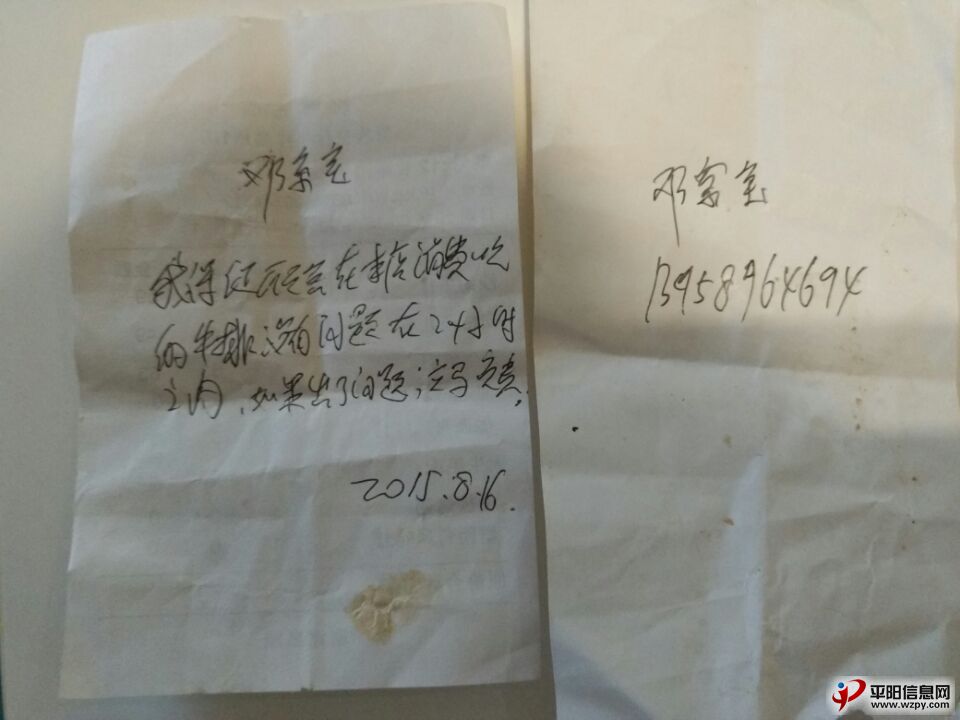 邓家宝
我保证在本店消费吃
的牛排没有问题在24小时
之内,如果出了问题,立马负责.
2015.8.16.
邓家宝
13958964694
平阳信息网
www.wzpy.com